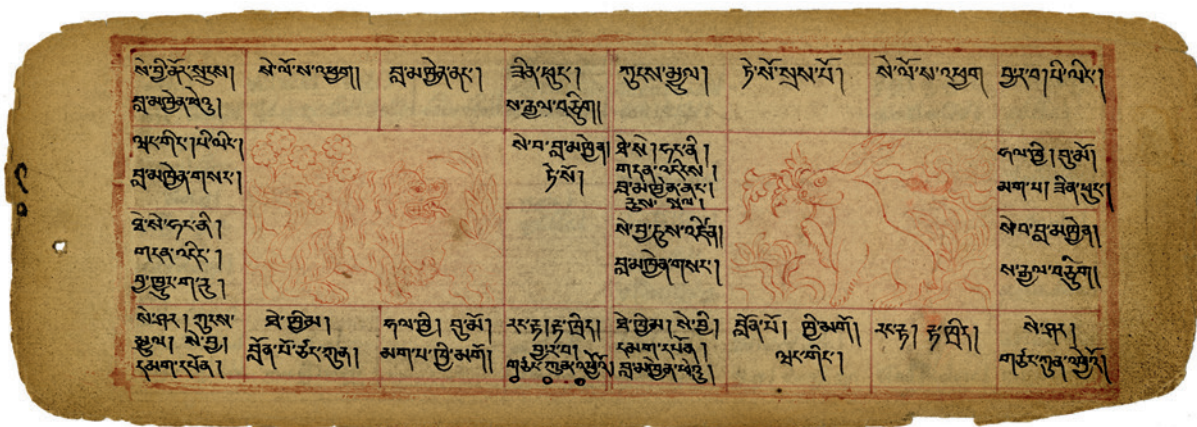 སེ་བྱི་ནོར་སྲུངས།
བླ་མཁྱེན་ཕེའུ།
སེ་ལོ་ས་འཕྱག།
བླ་མ་ཁྱེན་ནང་།
ཟིན་ཕུང་།
ས་རྒྱལ་བརྩིག།
ཀུངས་མྱུལ།
ཏེ་སོ་སྲས་པོ།
སེ་ལོ་ས་འཕྱག
བྱར་བ། པི་ལིང་།
ལྷང་གིང་། པི་ལིང་།
བླ་མཁྱེན་གསང་།
སེ་བ་བླ་མཁྱེན།
ཏེ་སོ།
ཐེ་སེ། ཧང་ནི།
གདན་འདེངས།
བླ་མཁྱེན་ནང་།
ཧལ་ཁྱི། བུ་མོ།
མག་པ། ཟིན་ཕུང་།
ཐེ་སེ་ཧང་ནི།
གདན་འདིང་།
བྱ་ཁྱུང་ག་རུ།
སེ་བྱ་རུས་འཛིན།
བླ་མཁྱེན་གསང་།
སེ་བ་བླ་མཁྱེན།
ས་རྒྱལ་བརྩིག།
སེ་ཤར། ཀུངས་
མྱུལ། སེ་བྱ།
དམག་དཔོན།
ཐེ་ཁྱིམ།
བློན་པོ་གཙང་ཀུན།
ཧལ་ཁྱི། བུ་མོ།
མག་པ་ཁྱི་མགོ།
རང་རྟ། རྟ་ཁྲིད།
བྱར་བ།
གཙང་ཀུན་འཕྱོའོ།
ཐེ་ཁྱིམ། སེ་བྱི།
དམག་དཔོན།
བླ་མཁྱེན་ཕེའུ།
བློན་པོ། ཁྱི་མགོ།
ལྷང་གིང་།
རང་རྟ། རྟ་ཁྲིད།
སེ་ཤར།
གཙང་ཀུན་འཕྱོའོ།